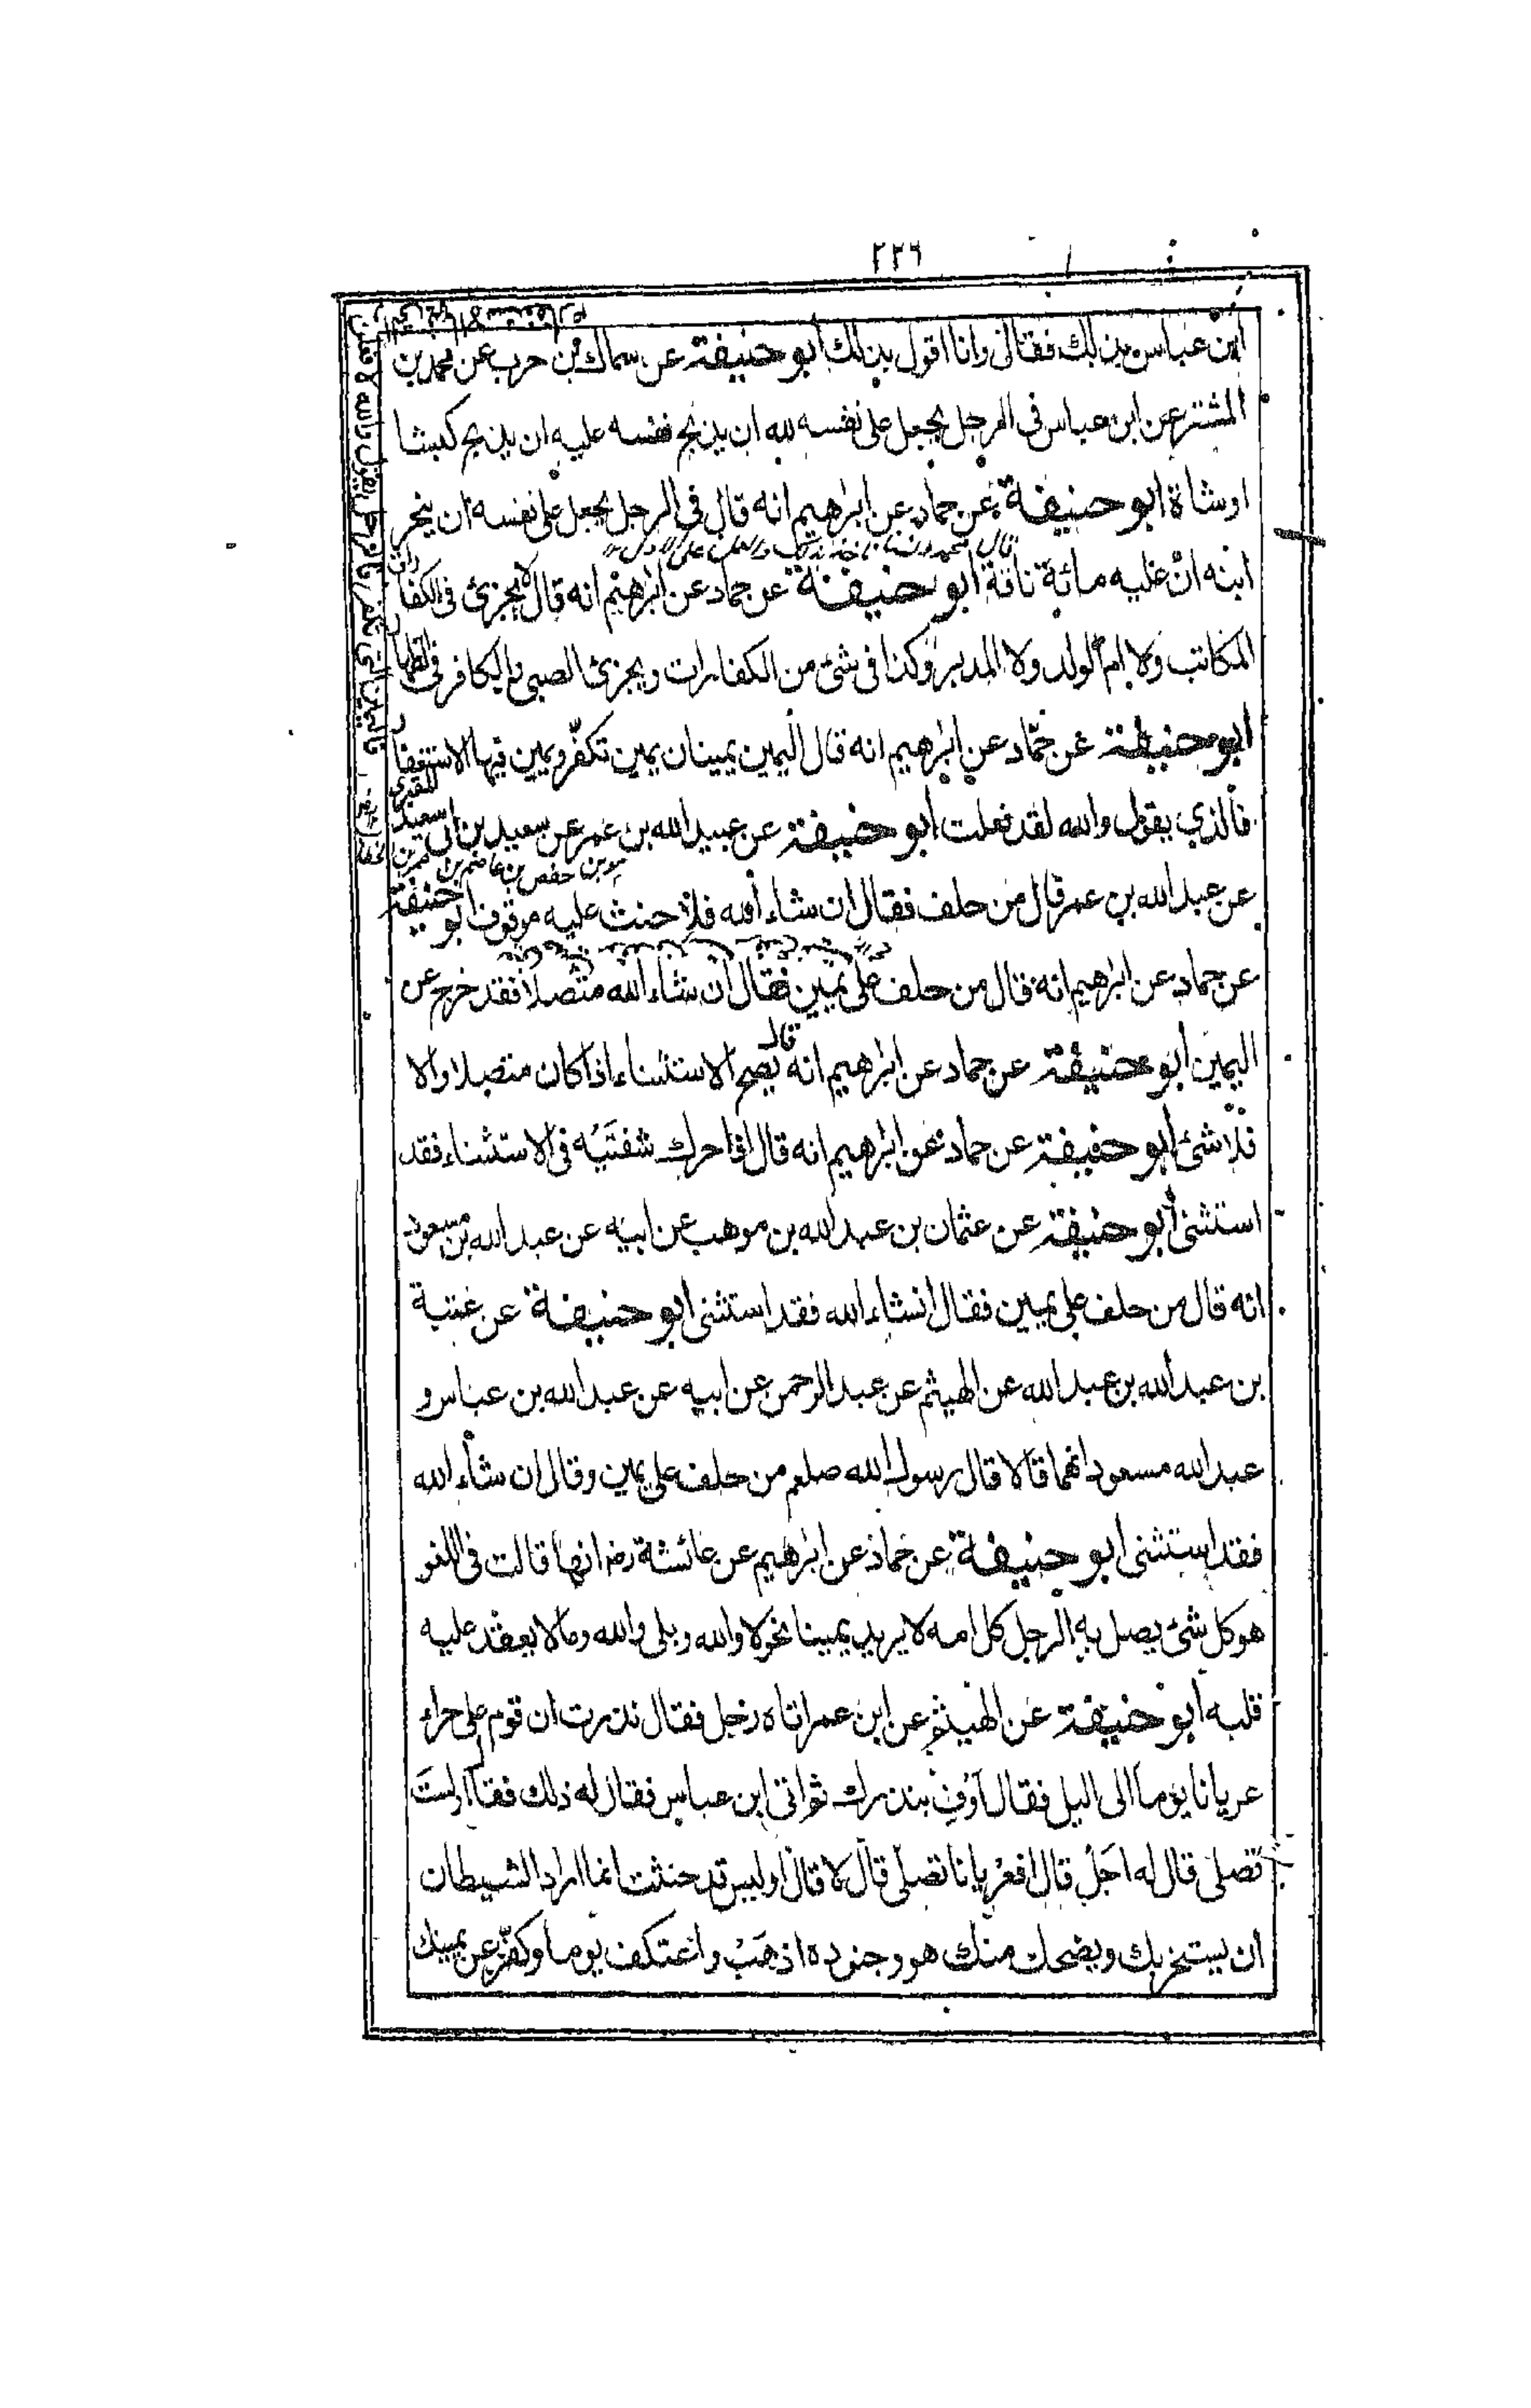 ٢٢٦
ابن عباس بذلك فقال وانا اقول بذلك ابو حنيفة عن سماك بن حرب عن محمد بن
المنتشر عن ابن عباس في الرجل يجعل على نفسه لله ان يذبح نفسه عليه ان يذبح كبشا
اوشاة ابو حنيفة عن حماد عن ابرهيم انه قال في الرجل يجعل على نفسه ان ينحر
ابنه ان عليه مائة ناقة ابو حنيفة عن حماد عن ابرهيم انه قال لا يجزئ في الكفا
المكاتب ولا ام الولد ولا المدبر وكذا في شئ من الكفارات ويجزئ الصبي والكافر في الظهار
ابو حنيفة عن حمّاد عن ابرهيم انه قال اليمين يمينان يمين تكفّر ويمين فيها الاستغفار
فالذي يقول والله لقد فعلت ابو حنيفة عن عبيد الله بن عمر عن سعيد بن ابي سعيد المقبري
عن عبد الله بن عمر قال من حلف فقال ان شاء الله فلا حنث عليه موقوف ابو حنيفة
عن حماد عن ابرهيم انه قال من حلف على يمين فقال ان شاء الله متصلا فقد خرج عن
اليمين ابو حنيفة عن حماد عن ابرهيم انه قال يصح الاستثناء اذا كان متصلا والا
فلا شئ ابو حنيفة عن حماد عن ابرهيم انه قال اذا حرك شفتَيْه في الاستثناء فقد
استثنى ابو حنيفة عن عثمان بن عبد الله بن موهب عن ابيه عن عبد الله بن مسعود
انه قال من حلف على يمين فقال انشاء الله فقد استثنى ابو حنيفة عن عتبة
بن عبد الله بن عبد الله عن الهيثم عن عبد الرحمن عن ابيه عن عبد الله بن عباس و
عبد الله مسعود انهما قالا قال رسول الله صلعم من حلف على يمين وقال ان شاء الله
فقد استثنى ابو حنيفة عن حماد عن ابرهيم عن عائشة رضـ انها قالت في اللغو
هو كل شئ يصل به الرجل كلامه لا يريد يمينا نحو لا والله وبلى والله وما لا يعقد عليه
قلبه ابو حنيفة عن الهيثم عن ابن عمر اتاه رجل فقال نذرت ان قوم على حراء
عريانا يوما الى اليل فقال اَوْفِ بنذرك ثم اتى ابن عباس فقال له ذلك فقال اولستَ
تصلي قال له اَجَلْ قال افعُريانا تصلّي قال لا قال اوليس قد حنثت انما اراد الشيطان
ان يستخر بك ويضحك منك هو وجنوده اذهَبْ واعتكف يوما وكفّر عن يمينك